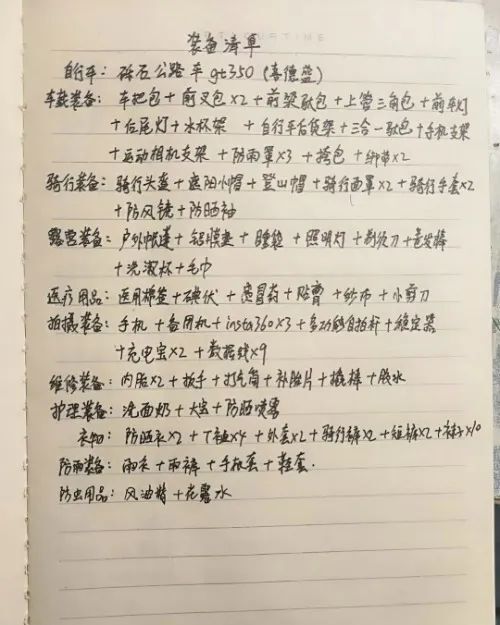 装备清单
自行车: 砾石公路车 gt350 (喜德盛)
车载装备: 车把包 + 前叉包x2 + 前梁驮包 + 上管三角包 + 前车灯
+ 后尾灯 + 水杯架 + 自行车后货架 + 三合一驮包 + 手机支架
+ 运动相机支架 + 防雨罩x3 + 挎包 + 绑带x2
骑行装备: 骑行头盔 + 遮阳小帽 + 登山帽 + 骑行面罩x2 + 骑行手套x2
+ 防风镜 + 防晒袖
露营装备: 户外帐篷 + 铝膜垫 + 睡袋 + 照明灯 + 刮胡刀 + 卷发棒
+ 洗漱杯 + 毛巾
医疗用品: 医用棉签 + 碘伏 + 感冒药 + 贴膏 + 纱布 + 小剪刀
拍摄装备: 手机 + 备用机 + insta360x3 + 多功能自拍杆 + 稳定器
+ 充电宝x2 + 数据线x9
维修装备: 内胎x2 + 扳手 + 打气筒 + 补胎片 + 撬棒 + 胶水
护理装备: 洗面奶 + 大宝 + 防晒喷雾
衣物: 防晒衣x2 + T恤x4 + 外套x2 + 骑行裤x2 + 短裤x2 + 袜子x10
防雨装备: 雨衣 + 雨裤 + 手机套 + 鞋套.
防虫用品: 风油精 + 花露水